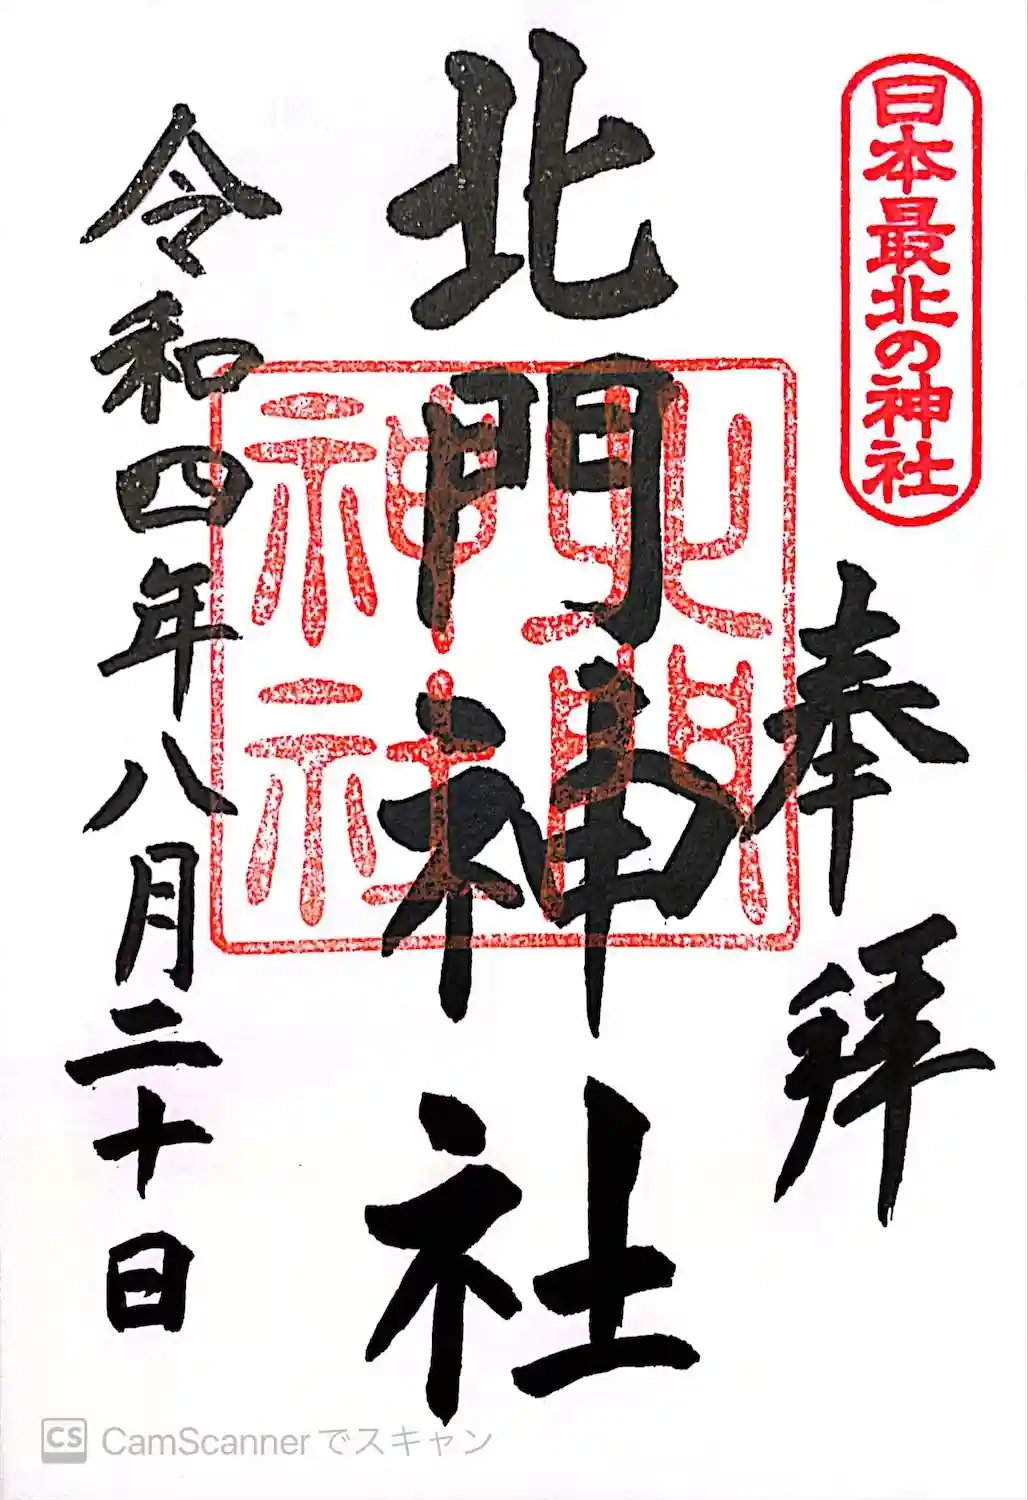 日本最北の神社
奉拝
北門神社
北門神社
令和四年八月二十日
CS CamScannerでスキャン